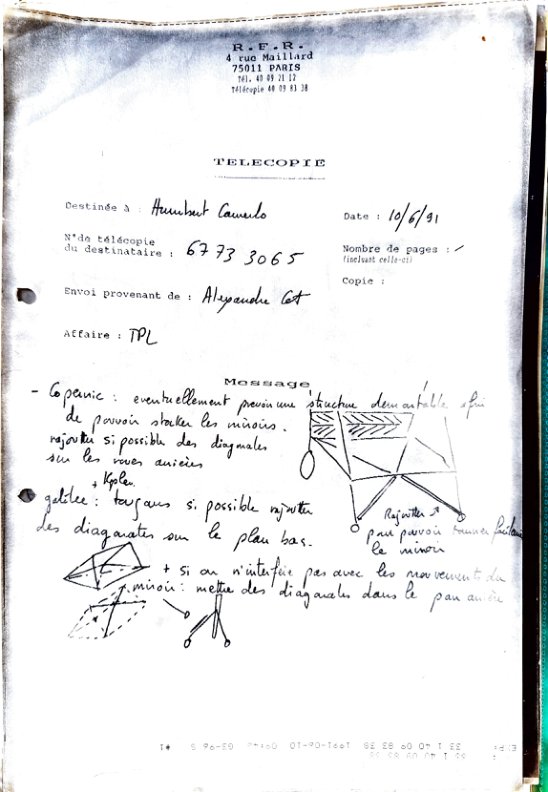 R.F.R.
4 rue Maillard
75011 PARIS
Tél. 40 09 21 12
Télécopie 40 09 83 38
TELECOPIE
Destinée à : Humbert Camerlo
Date : 10/6/91
N°de télécopie
du destinataire : 67 73 3065
Nombre de pages : /
(incluant celle-ci)
Copie :
Envoi provenant de : Alexandre Cot
Affaire : TPL
Message
- Copernic : eventuellement prevoir une structure demontable afin
de pouvoir stocker les miroirs.
rajouter si possible des diagonales
sur les roues arrières
+ Kepler
galilée : toujours si possible rajouter
des diagonales sur le plan bas.
Rajouter
pour pouvoir tourner
le miroir
+ si on n'interfère pas avec les mouvements du
miroir : mettre des diagonales dans le pan arrière